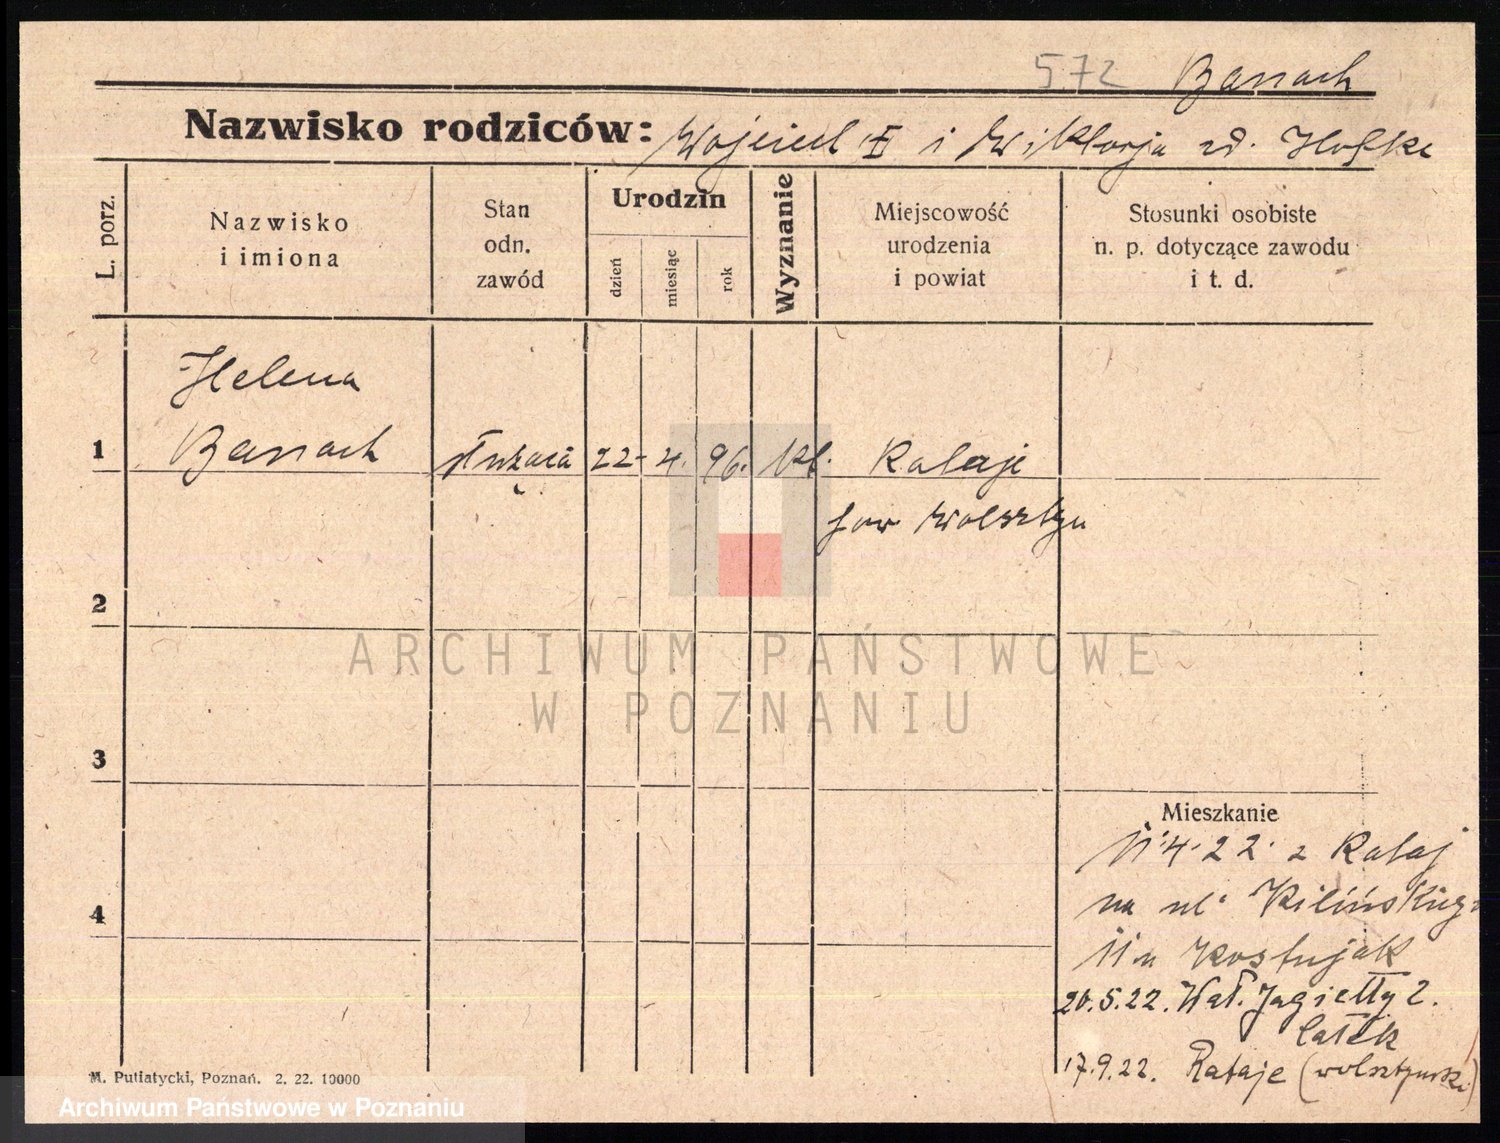 572 Banach
Nazwisko rodziców: Wojciech † i Wiktorja zd. Hofke
L. porz.
Nazwisko
i imiona
Stan
odn.
zawód
Urodzin
dzień
miesiąc
rok
Wyznanie
Miejscowość
urodzenia
i powiat
Stosunki osobiste
n. p. dotyczące zawodu
i t. d.
Helena
1 Banach służąca 22- 4. 96. kt. Rataje
pow Wolsztyn
2
ARCHIWUM PAŃSTWOWE
W POZNANIU
3
Mieszkanie
11.4.22. z Rataj
na ul. Kilińskiego
11 u
4
26.5.22. Wał. Jagiełły 2.
17.9.22. Rataje (wolsztyński)
M. Putiatycki, Poznań. 2. 22. 10000
Archiwum Państwowe w Poznaniu